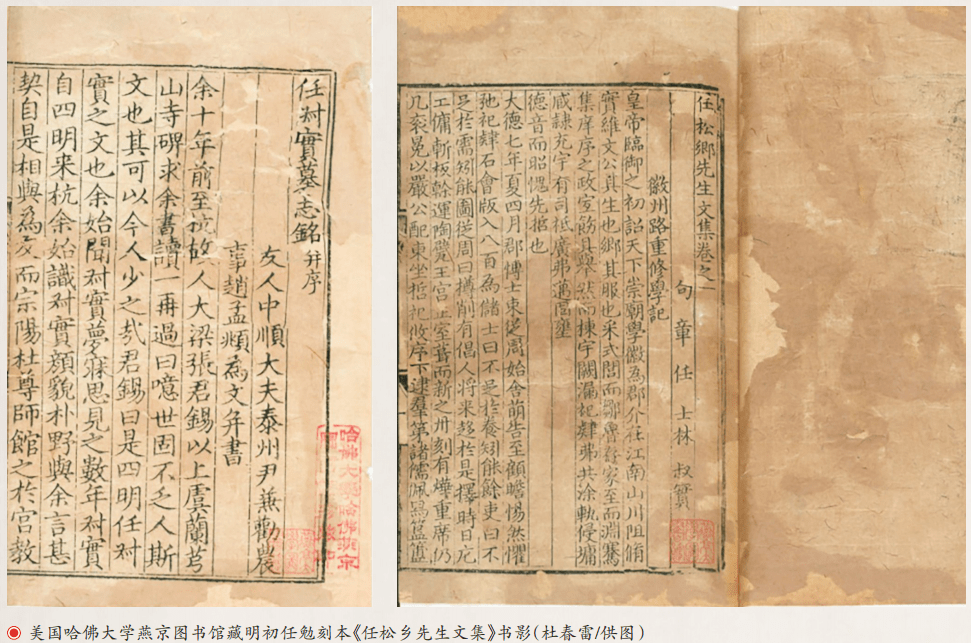 任叔實墓志銘并序
友人中順大夫泰州尹兼勸農
事趙孟頫為文并書
余十年前至杭故人大梁張君錫以上虞蘭芎
山寺碑求余書讀一再過曰噫世固不乏人斯
文也其可以今人少之哉君錫曰是四明任叔
實之文也余始聞叔實夢寐思見之數年叔實
自四明来杭余始識叔實顏貌朴野與余言甚
契自是相與為友而宗陽杜尊師館之於宫教
任松鄉先生文集卷之一
句章任士林叔實
徽州路重修學記
皇帝臨御之初詔天下崇廟學徽為郡介在江南山川阻脩
實維文公其生也鄉其服也采式閭而鄒魯家至而淵騫
集庠序之政室飭具舉然而棟宇闕漏祀肄弗共涂軌侵墉
咸隸充宇有司祗廣弗區壅
德音而昭愧先哲也
大德七年夏四月郡博士東周始舍萌告至顧瞻惕然懼
弛祀肄石會版入八百為儲士曰不足於養矧能餘吏曰不
足於需矧能圖從周曰撙削有倡人將来趍於是擇時日庀
工傭斬板榦運陶甓王宫正室葺而新之丹刻有煒重席仍
几衮冕以嚴公配東坐哲祀攸序下逮羣第諸儒佩舄簠簋
美国哈佛大学燕京图书馆藏明初任勉刻本《任松乡先生文集》书影(杜春雷/供图)